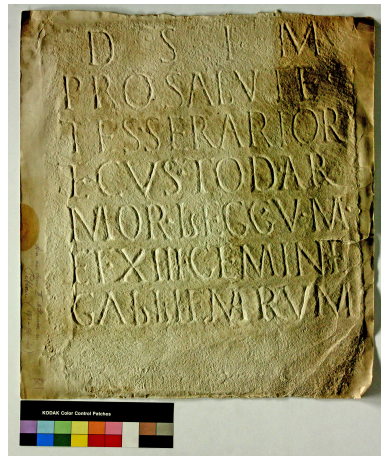 D S I M
PRO SALVTE
TESSERARIOR
ET·CVSTOD AR
MOR·LEGG V·M·
ET XIII GEMINE
GALLIENARVM
KODAK Color Control Patches